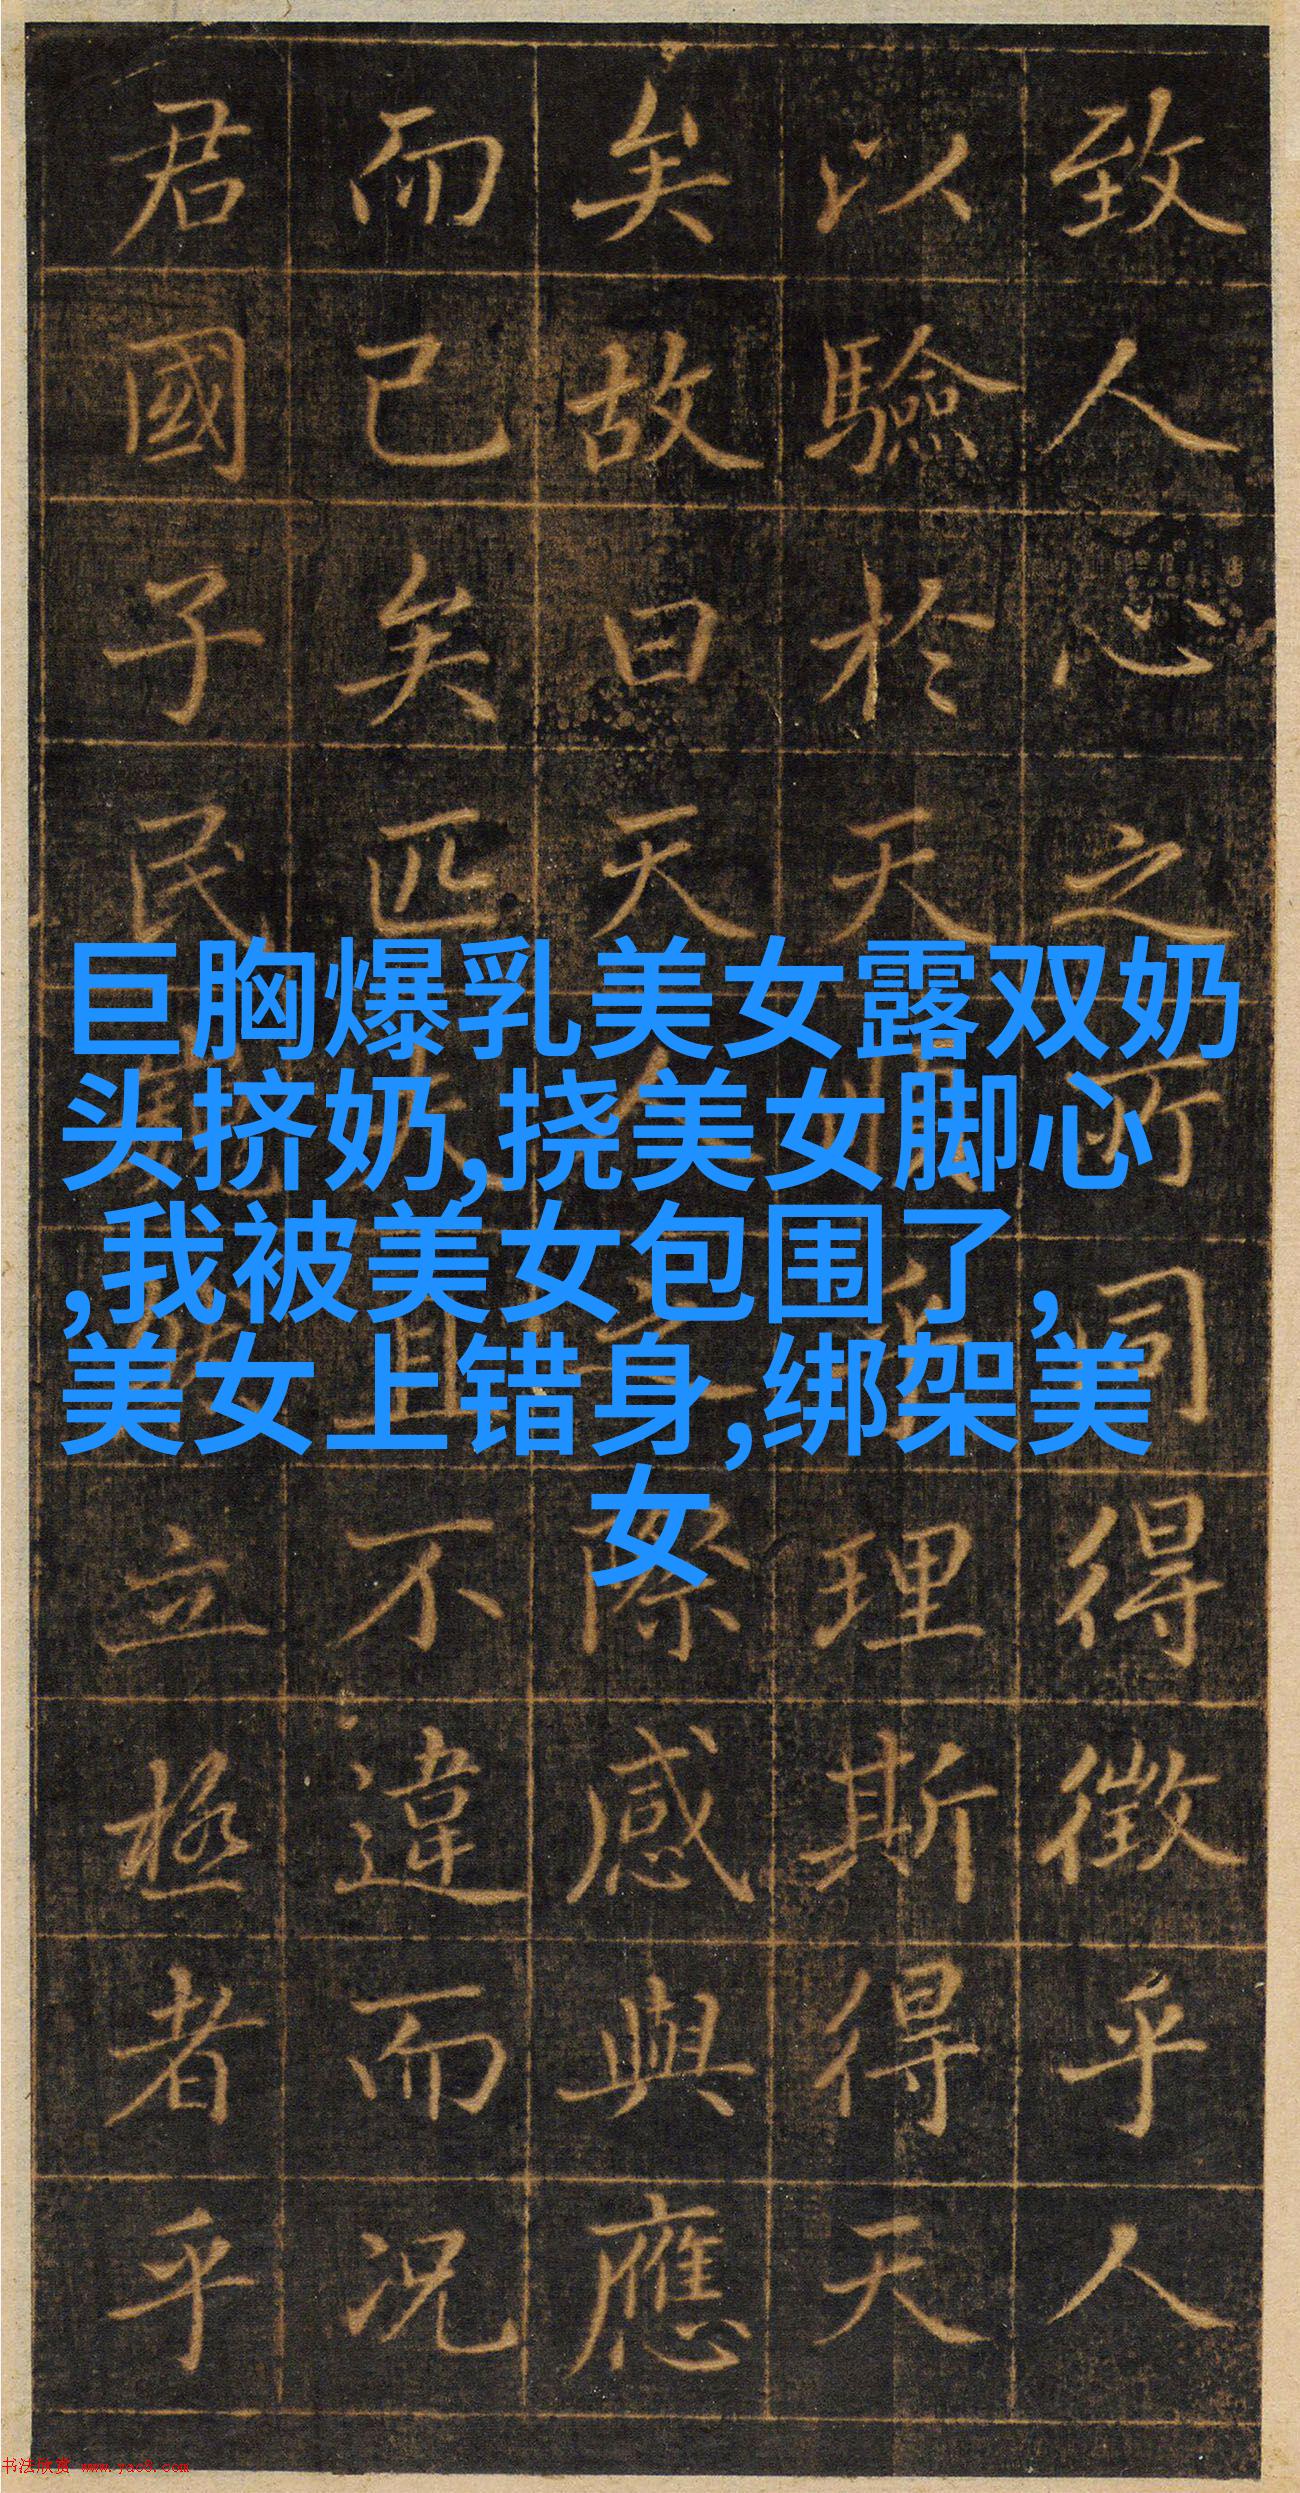 致人心之所同得徵乎人
以驗於天理斯得天
矣故曰天人之際感與應
而已矣匹夫且不違而況
君國子民立極者乎
巨胸爆乳美女露双奶
头挤奶,挠美女脚心
,我被美女包围了,
美女上错身,绑架美
女
书法欣赏 www.yac8.com